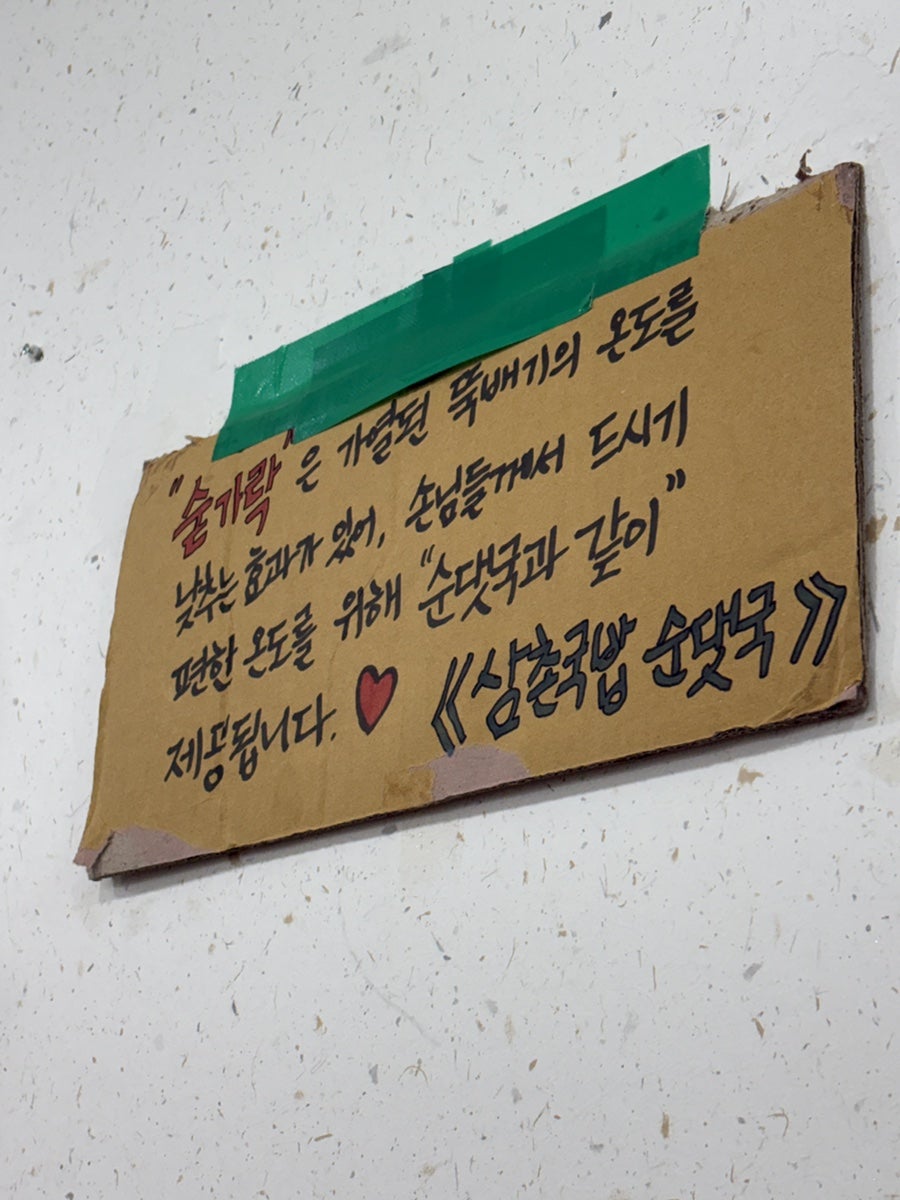 "숟가락"은 가열된 뚝배기의 온도를
낮추는 효과가 있어, 손님들께서 드시기
편한 온도를 위해 "순댓국과 같이"
제공됩니다. ♥ 《삼촌국밥 순댓국》